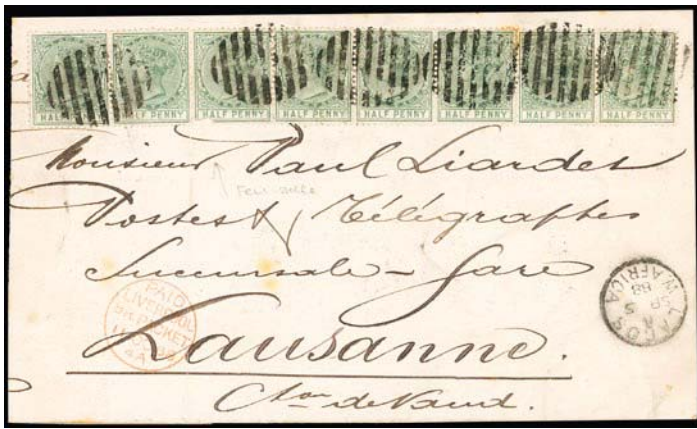 HALF PENNY HALF PENNY HALF PENNY HALF PENNY HALF PENNY HALF PENNY HALF PENNY HALF PENNY
Monsieur Paul Liardet
Postes & Télégraphes
Succursale - Gare
Lausanne.
Cton de Vaud.
PAID
LIVERPOOL
BR. PACKET
LAGOS
W AFRICA
SP 5
88